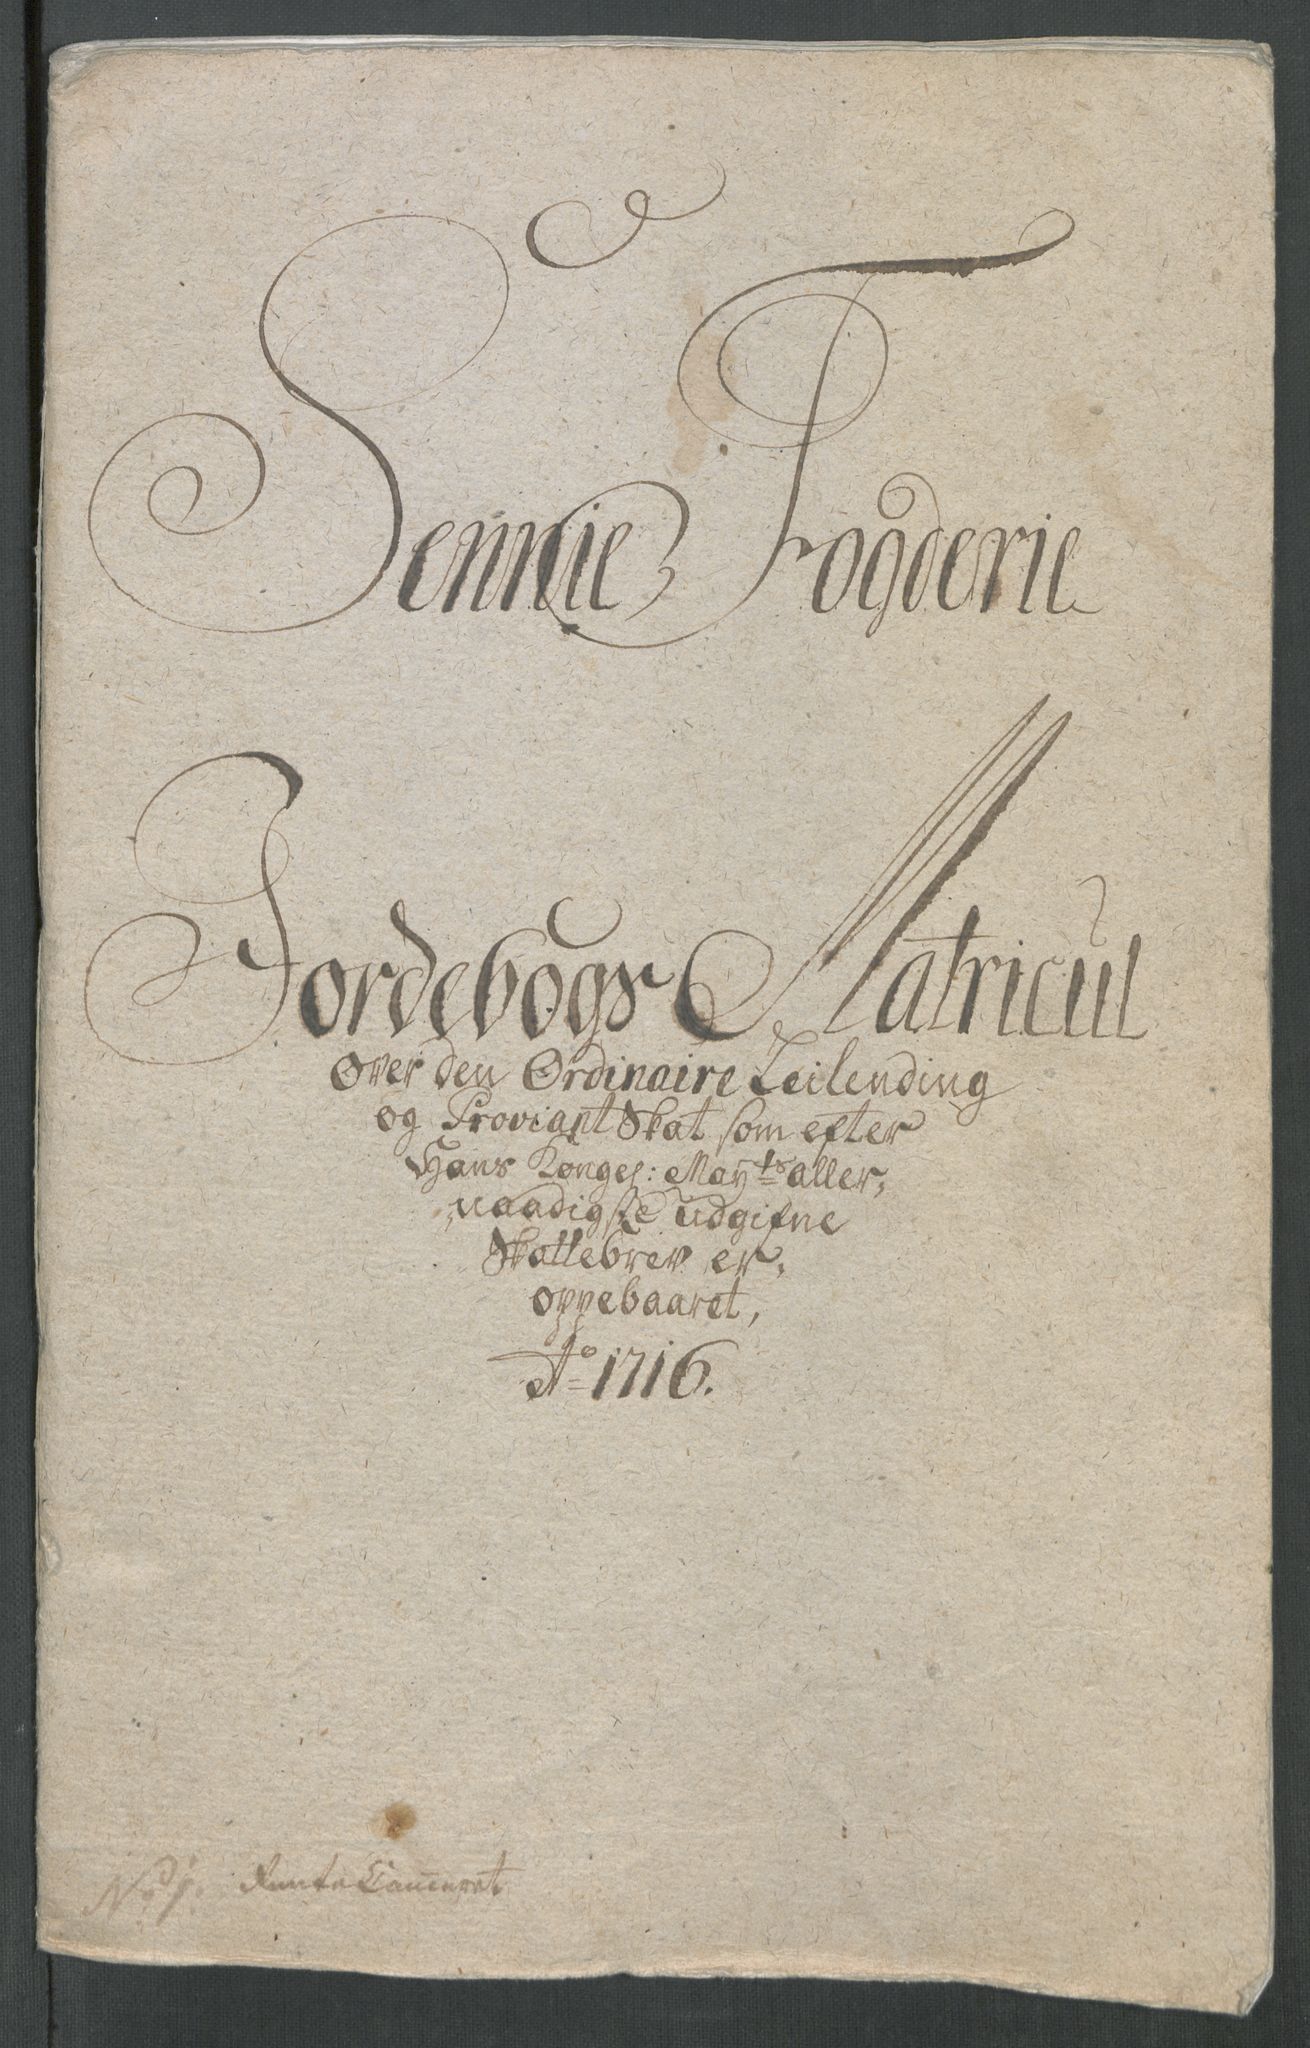 Sennie Fogderie
Jordebogs Matricul
over den Ordinaire Leilending
og Proviant Skat som efter
Hans Konges: Mayts aller,
naadigste udgifne
Skattebrev er,
oppebaaret,
Ao 1716.
No 1. Rente Cammeret